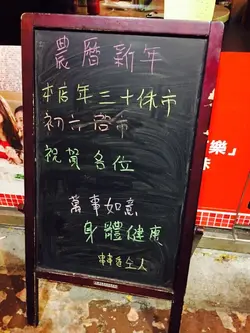 農曆新年
本店年三十休市
初六啓市
祝賀各位
萬事如意
身體健康
全人
樂」
味